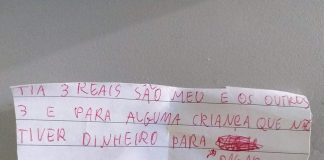 TIA 3 REAIS SÃO MEU E OS OUTROS
3 E PARA ALGUMA CRIANÇA QUE NÃ
TIVER DINHEIRO PARA
PAGAR